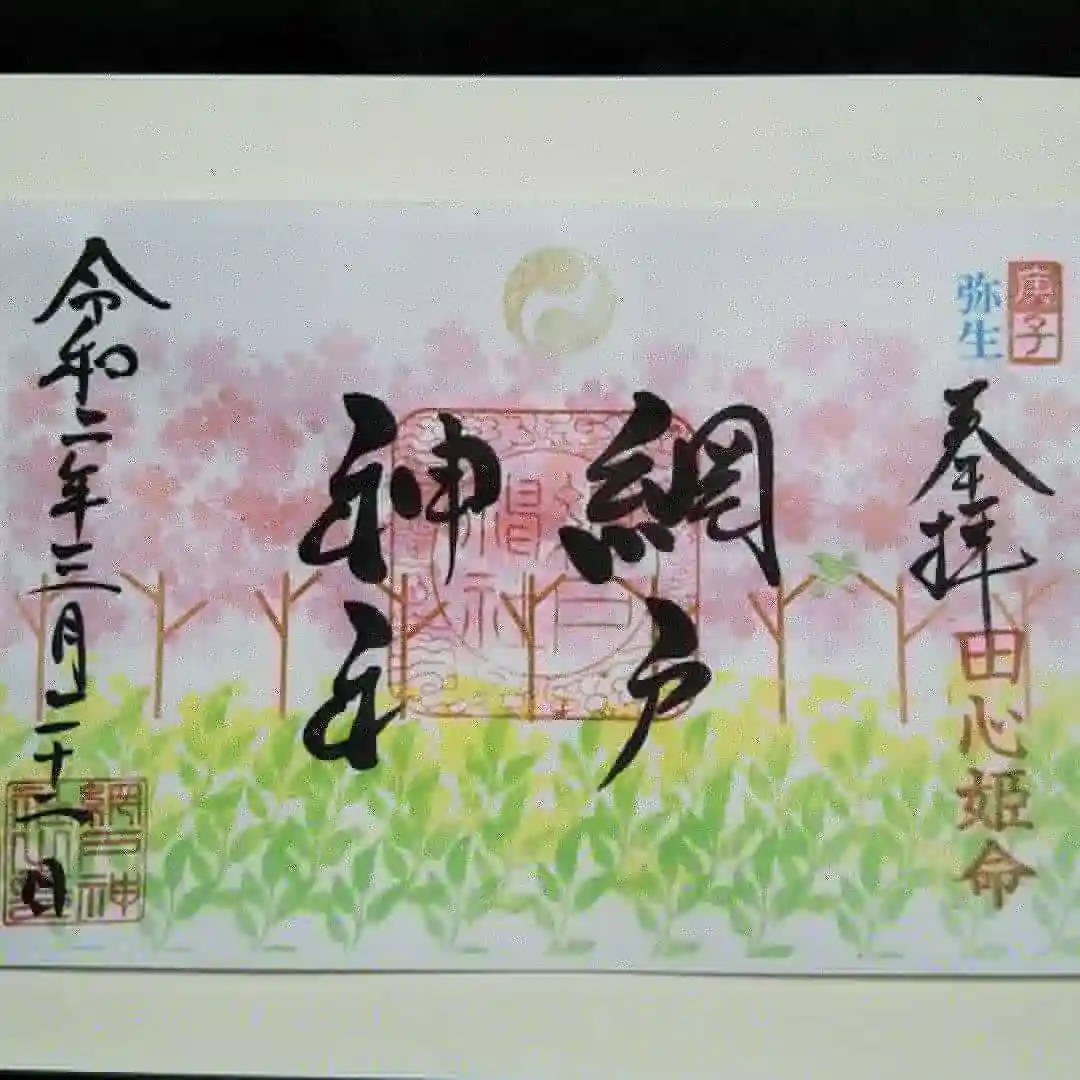 庚子
弥生
奉拝
田心姫命
網戸
神社
令和二年三月二十二日
網戸神